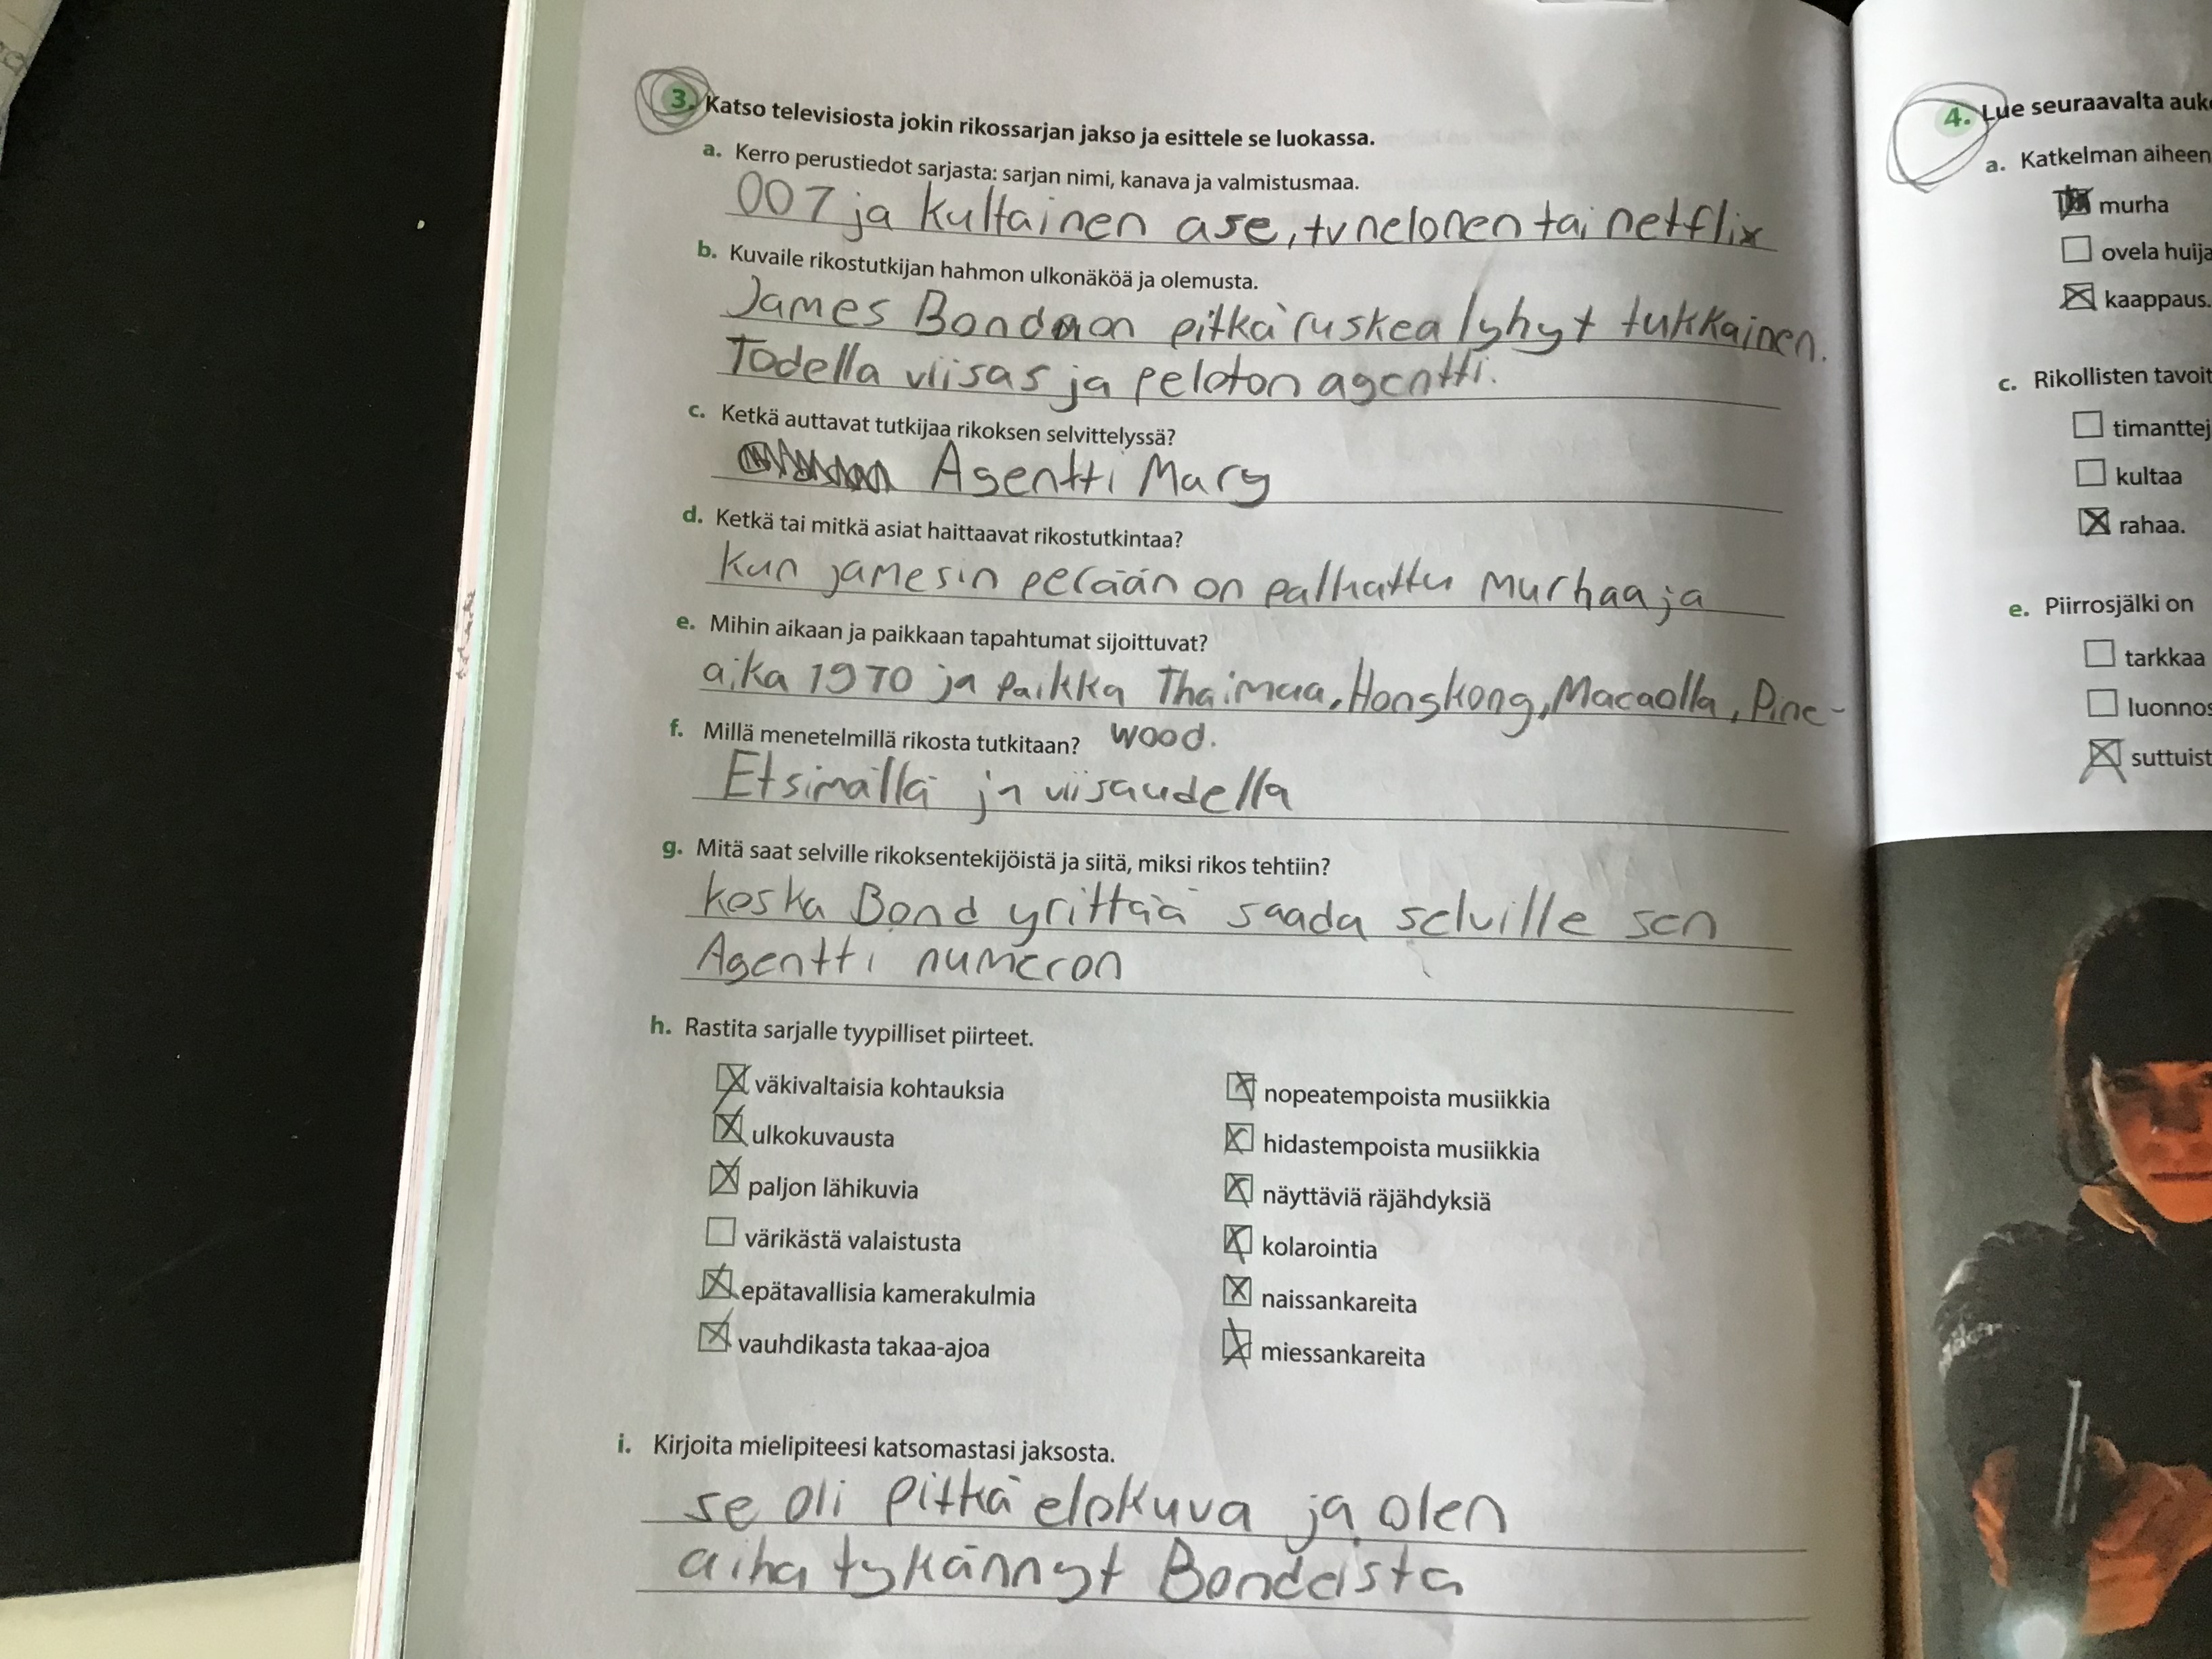 3. Katso televisiosta jokin rikossarjan jakso ja esittele se luokassa.
a. Kerro perustiedot sarjasta: sarjan nimi, kanava ja valmistusmaa.
007 ja kultainen ase, tv nelonen tai netflix
b. Kuvaile rikostutkijan hahmon ulkonäköä ja olemusta.
James Bond on pitkä ruskea lyhyt tukkainen.
Todella viisas ja peloton agentti.
c. Ketkä auttavat tutkijaa rikoksen selvittelyssä?
Agentti Mary
d. Ketkä tai mitkä asiat haittaavat rikostutkintaa?
kun jamesin perään on palkattu murhaaja
e. Mihin aikaan ja paikkaan tapahtumat sijoittuvat?
aika 1970 ja paikka Thaimaa, Hongkong, Macaolla, Pine-
wood.
f. Millä menetelmillä rikosta tutkitaan?
Etsimällä ja viisaudella
g. Mitä saat selville rikoksentekijöistä ja siitä, miksi rikos tehtiin?
koska Bond yrittää saada selville sen
Agentti numeron
h. Rastita sarjalle tyypilliset piirteet.
väkivaltaisia kohtauksia
ulkokuvausta
paljon lähikuvia
värikästä valaistusta
epätavallisia kamerakulmia
vauhdikasta takaa-ajoa
nopeatempoista musiikkia
hidastempoista musiikkia
näyttäviä räjähdyksiä
kolarointia
naissankareita
miessankareita
i. Kirjoita mielipiteesi katsomastasi jaksosta.
se oli pitkä elokuva ja olen
aina tykännyt Bondeista
4. Lue seuraavalta auk
a. Katkelman aiheen
murha
ovela huija
kaappaus.
c. Rikollisten tavoit
timanttej
kultaa
rahaa.
e. Piirrosjälki on
tarkkaa
luonnos
suttuist